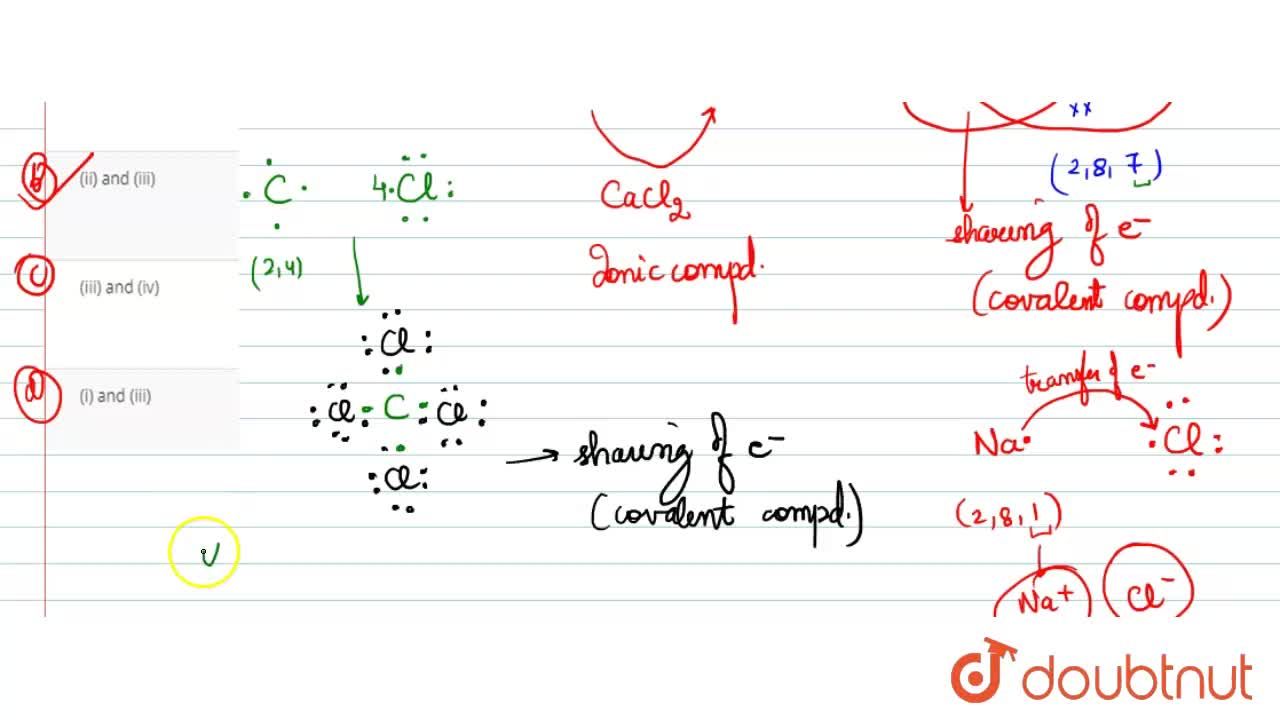 b (ii) and (iii)
c (iii) and (iv)
d (i) and (iii)
C
(2,4)
4 Cl
Cl
Cl C Cl
Cl
→ sharing of e⁻
(covalent compd.)
CaCl₂
Ionic compd.
xx
(2,8,7)
sharing of e⁻
(covalent compd.)
transfer of e⁻
Na Cl
(2,8,1)
Na⁺ Cl⁻
doubtnut